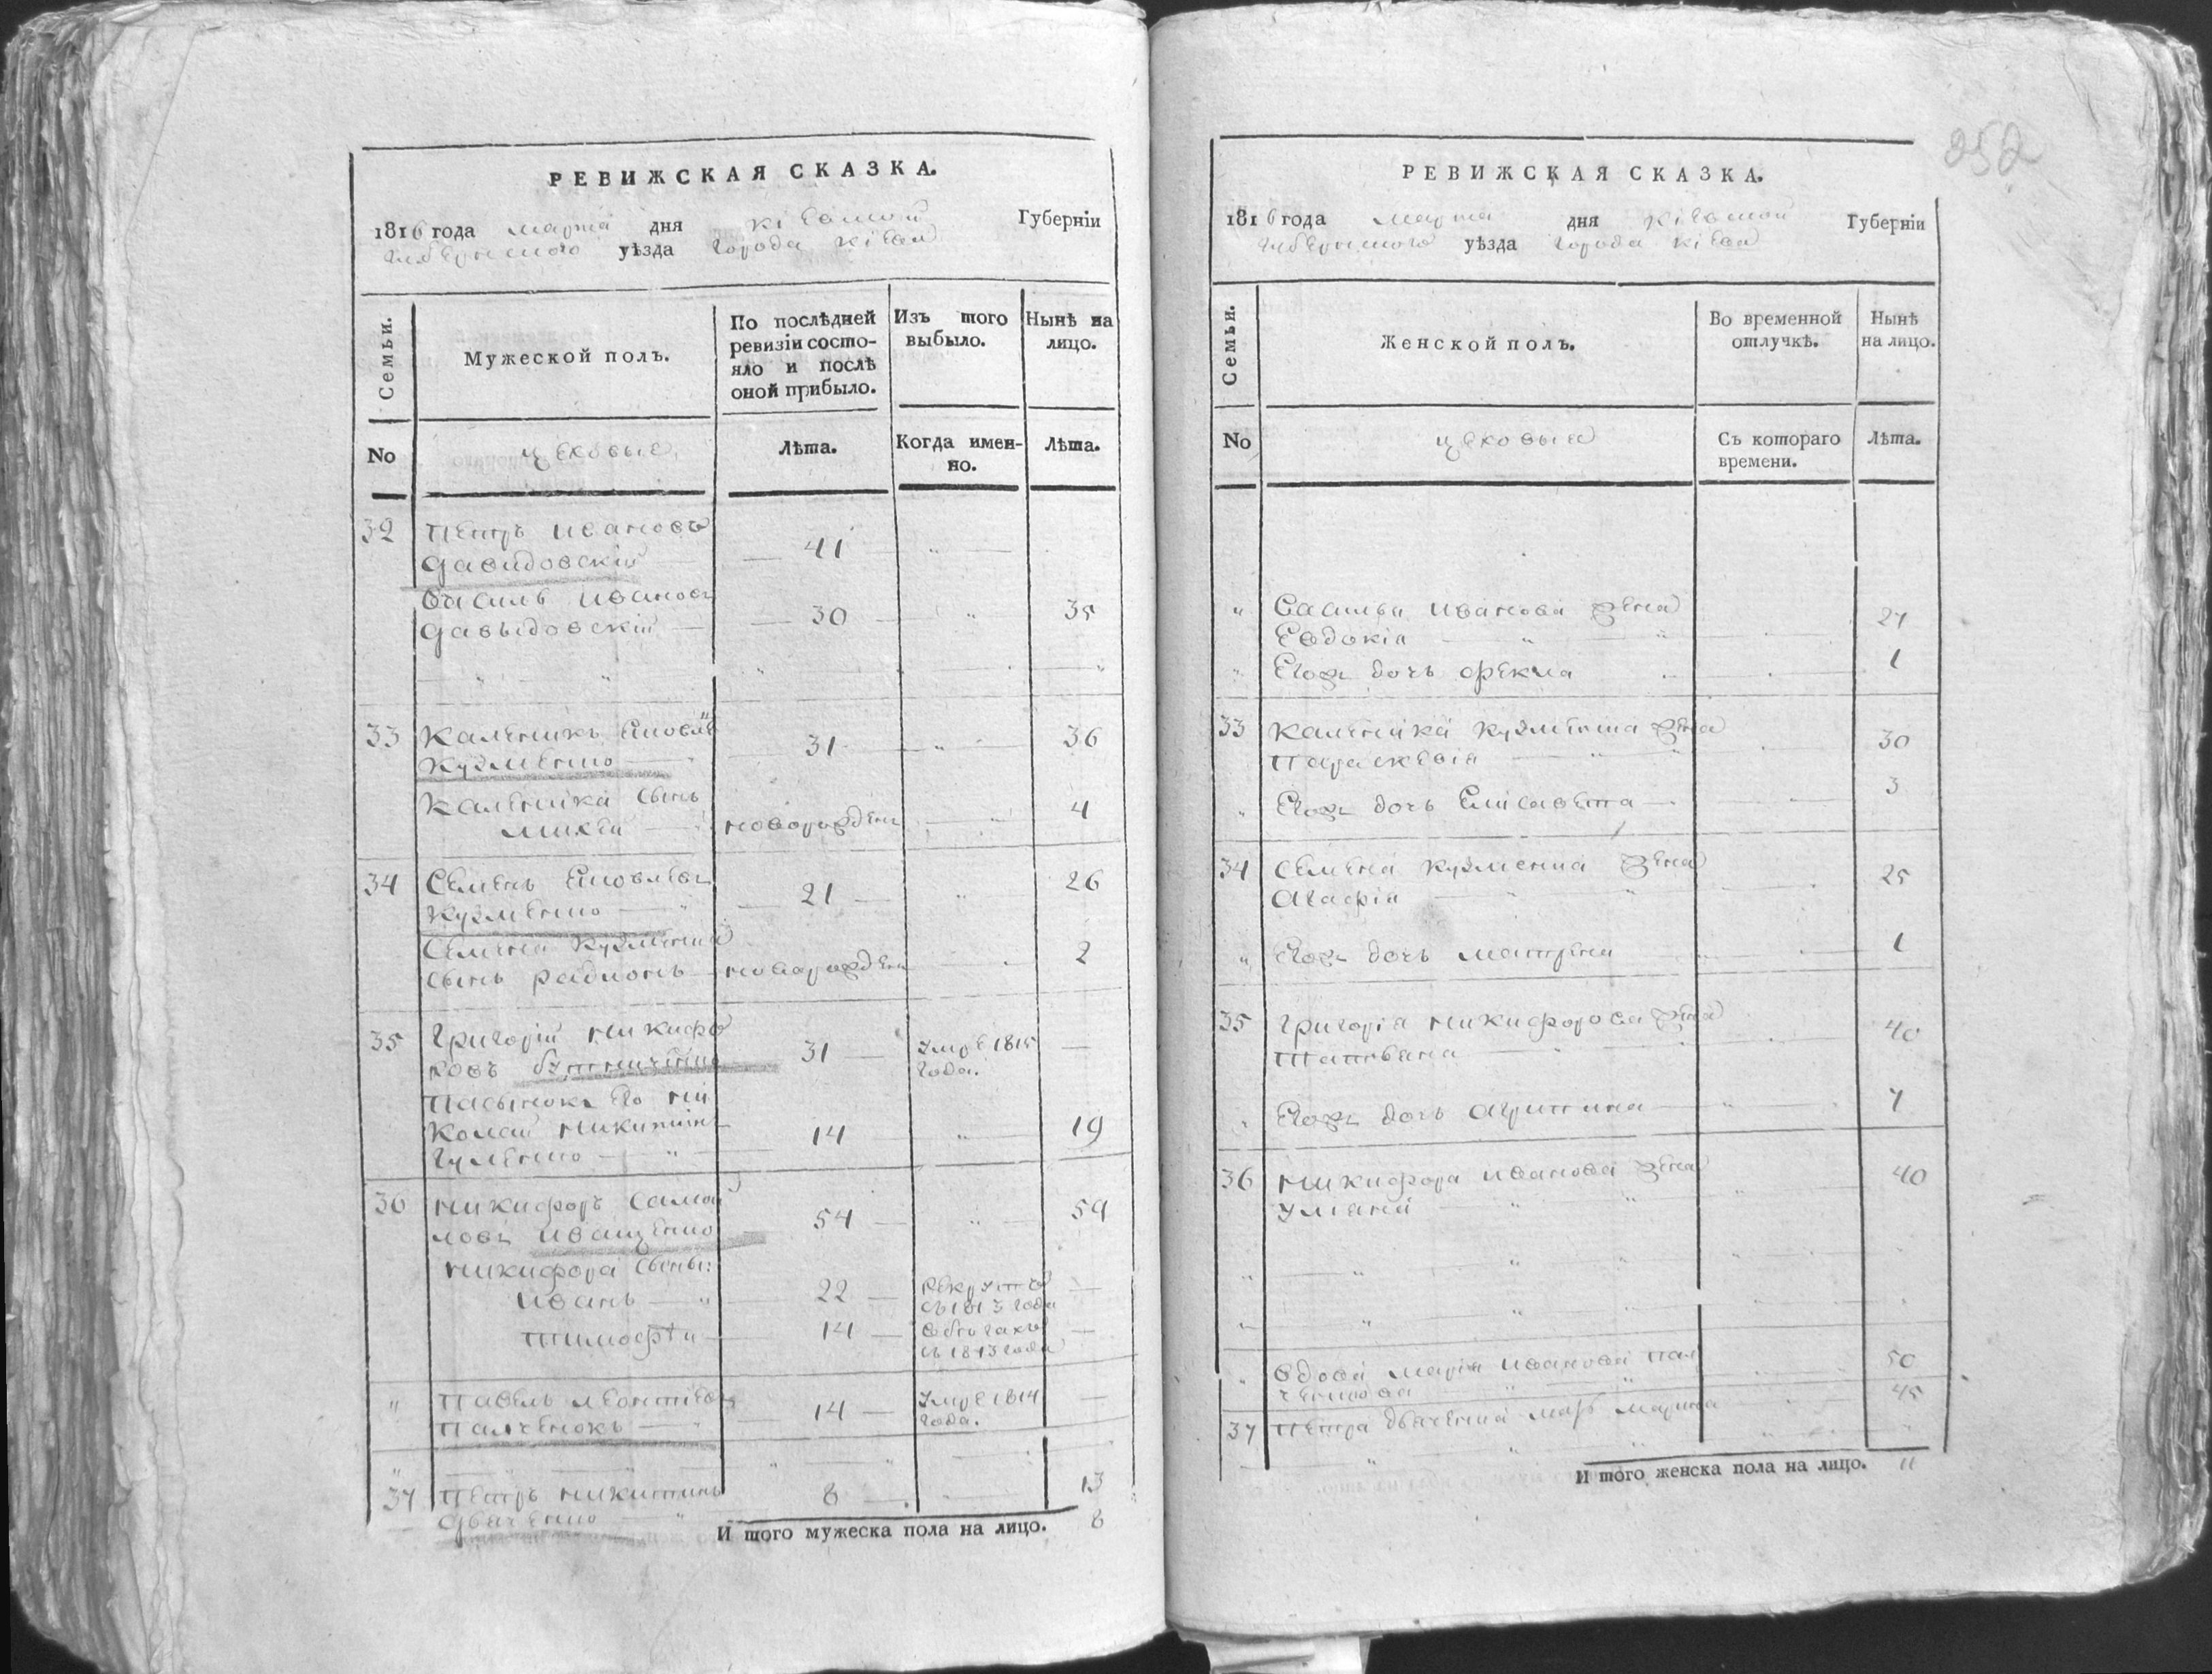 РЕВИЖСКАЯ СКАЗКА.
1816 года марта дня Кіевской Губерніи
Губернского уѣзда города Кіева
Семьи.
Мужеской полъ.
По послѣдней ревизіи состо-
яло и послѣ
оной прибыло.
Изъ того
выбыло.
Нынѣ на
лицо.
No
цеховые
Лѣта.
Когда имен-
но.
Лѣта.
32 Петръ Ивановъ
Давидовскій 41
Василь Ивановъ
Давыдовскій 30 35
33 Каленикъ
Кузменко 31 36
Каленика сынъ
Микей новорожденъ 4
34 Семенъ Яковлевъ
Кузменко 21 26
Семена Кузменка
сынъ Радионъ новарожденъ 2
35 Григорій Микифо
ровъ 31 Умре 1815
года.
Пасынокъ его Ни
колай Никитинъ
Гуменко 14 19
36 Никифоръ Самой
ловъ Иващенко 54 59
Никифора сыны:
Иванъ 22 Рекрутъ
съ 1813 года
Тимофѣй 14 въ бегахъ
съ 1813 года
Павелъ Леонтіевъ
Палченокъ 14 Умре 1814
года.
37 Петръ Никитинъ
Дьяченко 8 13
И того мужеска пола на лицо. 8
252
РЕВИЖСКАЯ СКАЗКА.
1816 года марта дня Кіевской Губерніи
Губернского уѣзда города Кіева
Семьи.
Женской полъ.
Во временной
отлучкѣ.
Нынѣ
на лицо.
No
цеховые
Съ котораго
времени.
Лѣта.
Василья Иванова жена
Евдокія 27
Егожъ дочь Фекла 1
33 Каленика Кузменка жена
Параскевія 30
Егожъ дочь Елисавета 3
34 Семена Кузменка жена
Агафія 25
Егожъ дочь Матрена 1
35 Григорія Никифорова жена
Татьяна 40
Егожъ дочь Агрипина 7
36 Никифора Иванова жена 40
Уліана
Вдова Марія Иванова Пал
ченкова 50
37 Петра Дьяченка мать Марина 45
И того женска пола на лицо. 11